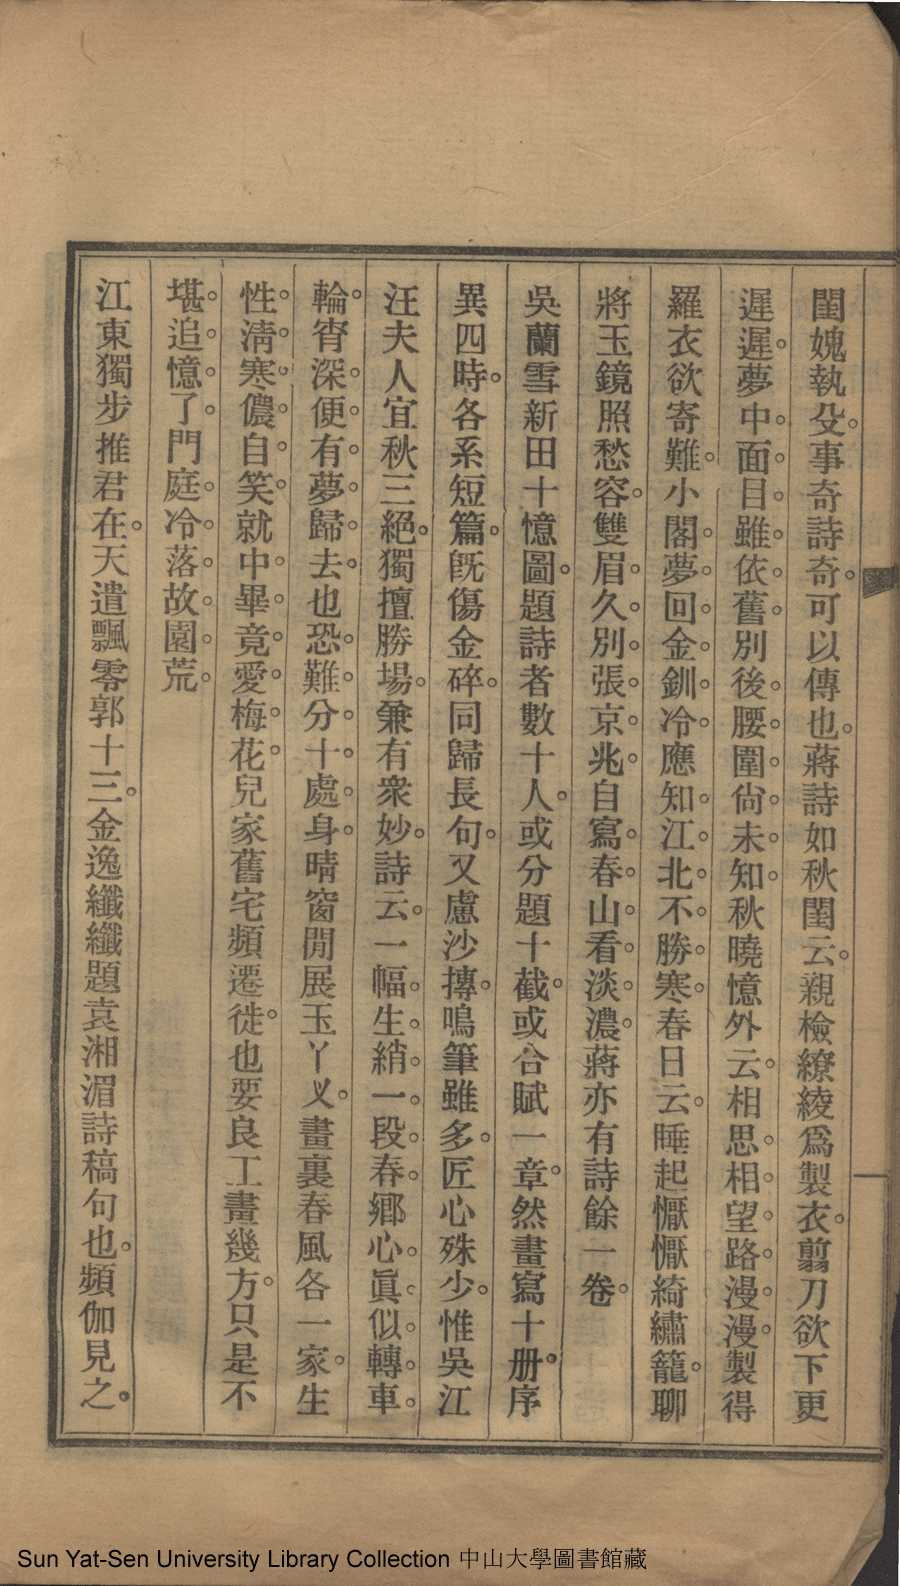 閨媿執殳事奇詩奇可以傳也蔣詩如秋閨云親檢繚綾爲製衣翦刀欲下更
遲遲夢中面目雖依舊別後腰圍尙未知秋曉憶外云相思相望路漫漫製得
羅衣欲寄難小閣夢回金釧冷應知江北不勝寒春日云睡起懨懨綺繡籠聊
將玉鏡照愁容雙眉久別張京兆自寫春山看淡濃蔣亦有詩餘一卷
吳蘭雪新田十憶圖題詩者數十人或分題十截或合賦一章然畫寫十册序
異四時各系短篇旣傷金碎同歸長句又慮沙摶鳴筆雖多匠心殊少惟吳江
汪夫人宜秋三絕獨擅勝場兼有衆妙詩云一幅生綃一段春鄉心眞似轉車
輪宵深便有夢歸去也恐難分十處身晴窗閒展玉丫叉畫裏春風各一家生
性淸寒儂自笑就中畢竟愛梅花兒家舊宅頻遷徙也要良工畫幾方只是不
堪追憶了門庭冷落故園荒
江東獨步推君在天遣飄零郭十三金逸纖纖題袁湘湄詩稿句也頻伽見之
Sun Yat-Sen University Library Collection 中山大學圖書館藏